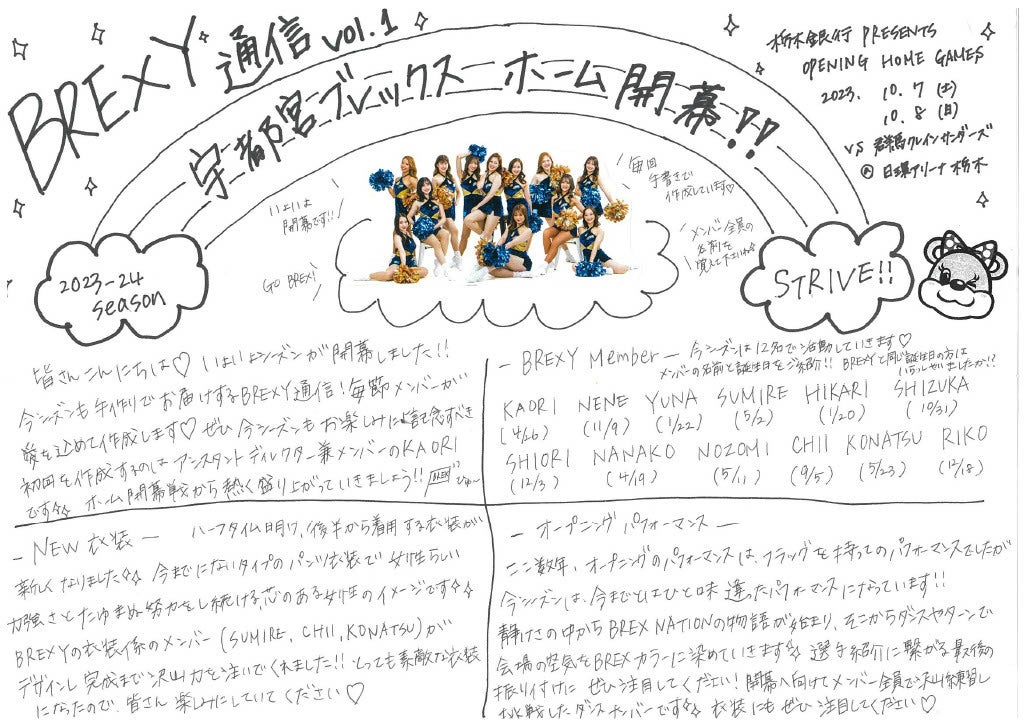 BREXY 通信 vol.1
宇都宮ブレックス ホーム開幕!!
栃木銀行 PRESENTS
OPENING HOME GAMES
2023. 10.7 (土)
10.8 (日)
VS 群馬クレインサンダーズ
@ 日環アリーナ栃木
いよいよ
開幕です!!
GO BREX!
毎回
手書きで
作成しています♡
メンバー全員の
名前を
覚えて下さいね
2023-24
season
STRIVE!!
皆さんこんにちは♡ いよいよシーズンが開幕しました!!
今シーズンも手作りでお届けするBREXY通信!毎節メンバーが
愛を込めて作成します♡ ぜひ今シーズンもお楽しみに 記念すべき
初回を作成するのは アシスタントディレクター兼メンバーのKAORI
です ホーム開幕戦から熱く盛り上がっていきましょう!!
- BREXY Member - 今シーズンは12名で活動していきます♡
メンバーの名前と誕生日をご紹介!! BREXYと同じ誕生日の方は
いらっしゃいましたか!?
KAORI NENE YUNA SUMIRE HIKARI SHIZUKA
(4/26) (11/9) (1/22) (5/2) (1/20) (10/31)
SHIORI NANAKO NOZOMI CHII KONATSU RIKO
(12/3) (4/19) (5/11) (9/5) (5/23) (12/18)
- NEW 衣装 - ハーフタイム明け、後半から着用する衣装が
新しくなりました 今までにないタイプのパンツ衣装で 女性らしい
力強さとたゆまぬ努力をし続ける、芯のある女性のイメージです
BREXYの衣装係のメンバー (SUMIRE, CHII, KONATSU)が
デザインし 完成まで沢山力を注いでくれました!! とっても素敵な衣装
になったので、皆さん 楽しみにしていてください♡
- オープニングパフォーマンス -
ここ数年、オープニングのパフォーマンスは、フラッグを持ってのパフォーマンスでしたが
今シーズンは、今までとはひと味違ったパフォーマンスになっています!!
静けさの中からBREX NATIONの物語が始まり、そこからダンスやターンで
会場の空気をBREXカラーに染めていきます 選手紹介に繋がる最後の
振り付けに ぜひ注目してください! 開幕へ向けてメンバー全員で沢山練習し
挑戦したダンスナンバーです 衣装にもぜひ注目してください♡